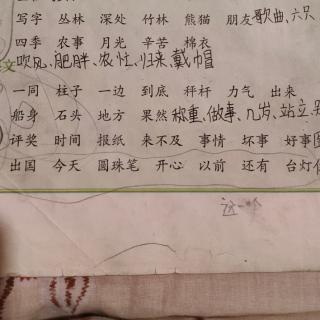 写字 丛林 深处 竹林 熊猫 朋友 歌曲、六只
四季 农事 月光 辛苦 棉衣
吹风、肥胖、农忙、归来、戴帽
一同 柱子 一边 到底 秤杆 力气 出来
船身 石头 地方 果然 称重、做事、几岁、站立、
评奖 时间 报纸 来不及 事情 坏事 好事
出国 今天 圆珠笔 开心 以前 还有 台灯
这一个